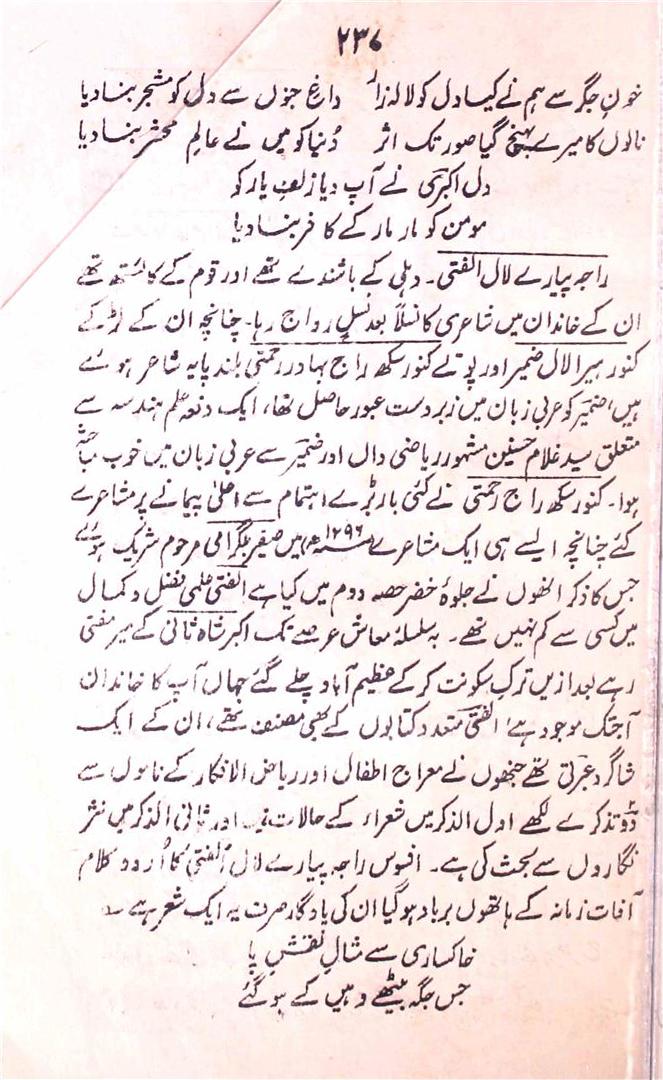 ۲۳۷
خونِ جگر سے ہم نے کیا دل کو لالہ زار داغِ جنوں سے دل کو مشجر بنا دیا
نالوں کا میرے پہنچ گیا صور تک اثر دُنیا کو میں نے عالمِ محشر بنا دیا
دل اکبرؔی نے آپ دیا زلفِ یار کو
مومن کو مار مار کے کافر بنا دیا
راجہ پیارے لال الفتیؔ۔ دہلی کے باشندے تھے اور قوم کے کائستھ تھے
ان کے خاندان میں شاعری کا نسلاً بعد نسلٍ رواج رہا۔ چنانچہ ان کے لڑکے
کنور ہیرا لال ضمیرؔ اور پوتے کنور سکھ راج بہادر رحمتیؔ بلند پایہ شاعر ہوئے
ہیں، ضمیرؔ کو عربی زبان میں زبردست عبور حاصل تھا، ایک دفعہ علم ہندسہ سے
متعلق سید غلام حسنین مشہور ریاضی داں اور ضمیرؔ سے عربی زبان میں خوب مباحثہ
ہوا۔ کنور سکھ راج رحمتیؔ نے کئی بار بڑے اہتمام سے اعلیٰ پیمانے پر مشاعرے
کئے چنانچہ ایسے ہی ایک مشاعرے ۱۲۹۶ھ میں صفیرؔ بلگرامی مرحوم شریک ہوئے
جس کا ذکر انھوں نے جلوۂ خضر حصہ دوم میں کیا ہے الفتیؔ علمی فضل و کمال
میں کسی سے کم نہیں تھے۔ بہ سلسلۂ معاش عرصے تک اکبر شاہ ثانی کے میر مفتی
رہے بعد ازیں ترکِ سکونت کر کے عظیم آباد چلے گئے جہاں آپ کا خاندان
آجتک موجود ہے، الفتیؔ متعدد کتابوں کے بھی مصنف تھے، ان کے ایک
شاگرد عبرتیؔ تھے جنھوں نے معراج اطفال اور ریاض الافکار کے ناموں سے
دو تذکرے لکھے اول الذکر میں شعراء کے حالات ہیں اور ثانی الذکر میں نثر
نگاروں سے بحث کی ہے۔ افسوس راجہ پیارے لال الفتیؔ کا اُردو کلام
آفات زمانہ کے ہاتھوں برباد ہو گیا ان کی یادگار صرف یہ ایک شعر ہے ؎
خاکساری سے مثالِ نقشِ پا
جس جگہ بیٹھے وہیں کے ہو گئے